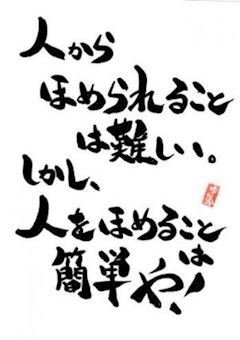 人から
ほめられること
は難しい。
しかし、
人をほめること
は
簡単や!